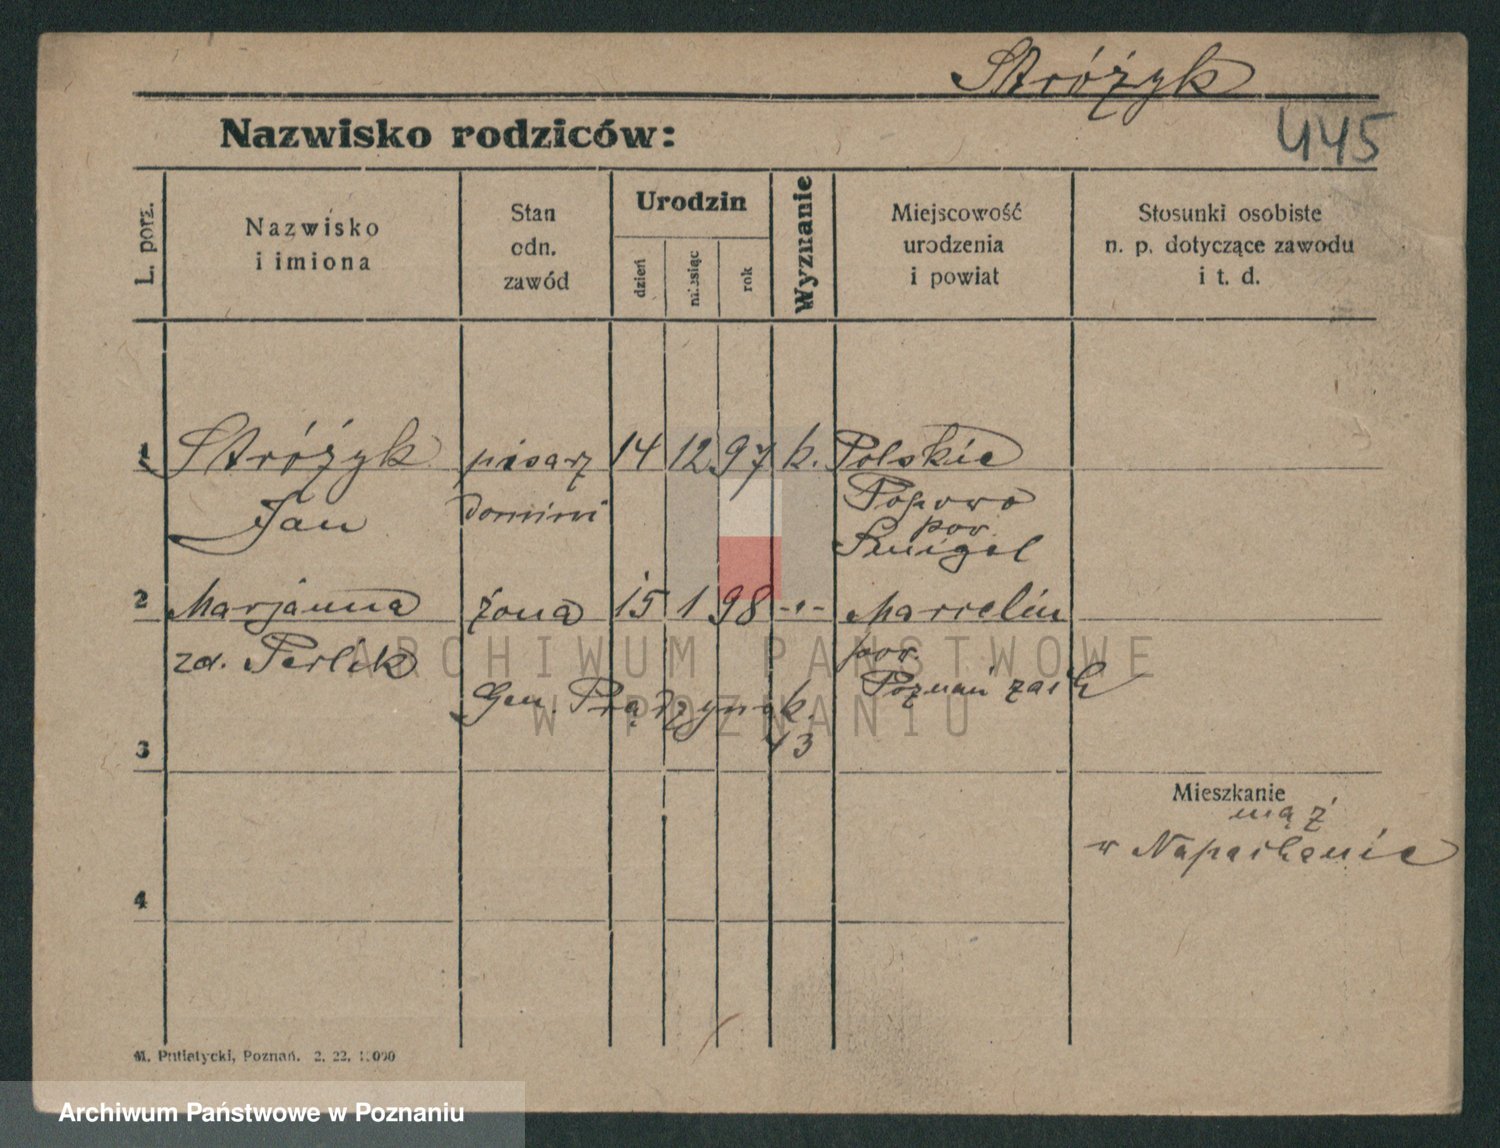 Stróżyk
Nazwisko rodziców:
445
L. porz.
Nazwisko
i imiona
Stan
odn.
zawód
Urodzin
dzień
miesiąc
rok
Wyznanie
Miejscowość
urodzenia
i powiat
Stosunki osobiste
n. p. dotyczące zawodu
i t. d.
1 Stróżyk pisarz 14 12 97 k. Polskie
Jan domini Popowo
pow.
Smigel
2 Marjanna żona 15 1 98 -"- Marcelin
zd. Perlik pow.
Poznań zach
Gen. Prądzyńsk.
43
3
Mieszkanie
mąż
w Napachanie
4
M. Putiatycki, Poznań. 2. 22.
ARCHIWUM PAŃSTWOWE
W POZNANIU
Archiwum Państwowe w Poznaniu